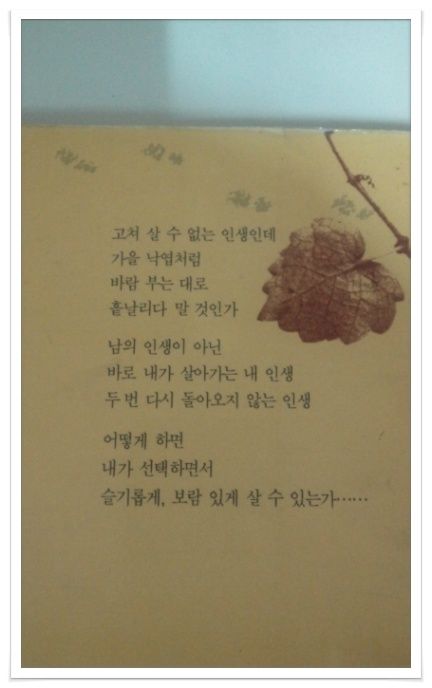 고쳐 살 수 없는 인생인데
가을 낙엽처럼
바람 부는 대로
흩날리다 말 것인가
남의 인생이 아닌
바로 내가 살아가는 내 인생
두 번 다시 돌아오지 않는 인생
어떻게 하면
내가 선택하면서
슬기롭게, 보람 있게 살 수 있는가……